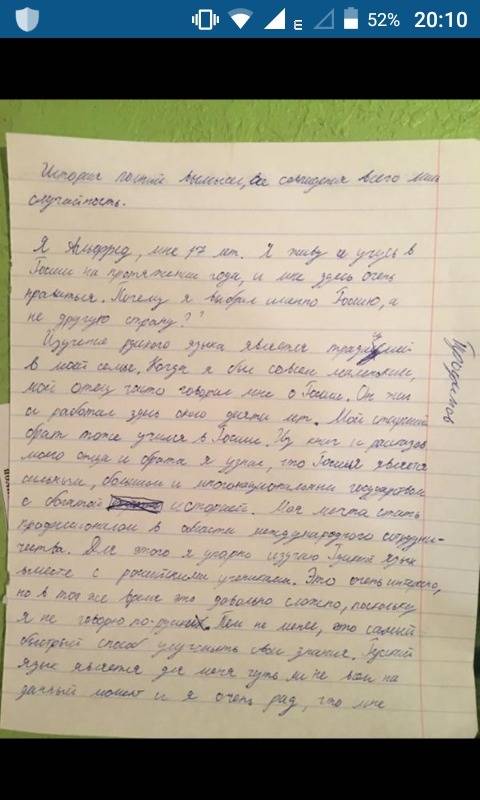 52% 20:10
История полный вымысел, все совпадения всего лишь
случайность.
Я Альфред, мне 17 лет. Я живу и учусь в
России на протяжении года, и мне здесь очень
нравиться. Почему я выбрал именно Россию, а
не другую страну?
Изучение русского языка является традицией
в моей семье. Когда я был совсем маленьким,
мой отец часто говорил мне о России. Он жил
и работал здесь около десяти лет. Мой старший
брат тоже учился в России. Из книг и рассказов
моего отца и брата я узнал, что Россия является
сильным, большим и многонациональным государством
с богатой историей. Моя мечта стать
профессионалом в области международного сотрудни-
чества. Для этого я упорно изучаю Русский язык
вместе с российскими учениками. Это очень интересно,
но в тоже же время это довольно сложно, поскольку
я не говорю по-русски. Тем не менее, это самый
быстрый способ улучшить свои знания. Русский
язык является для меня чуть ли не всем на
данный момент и я очень рад, что мне